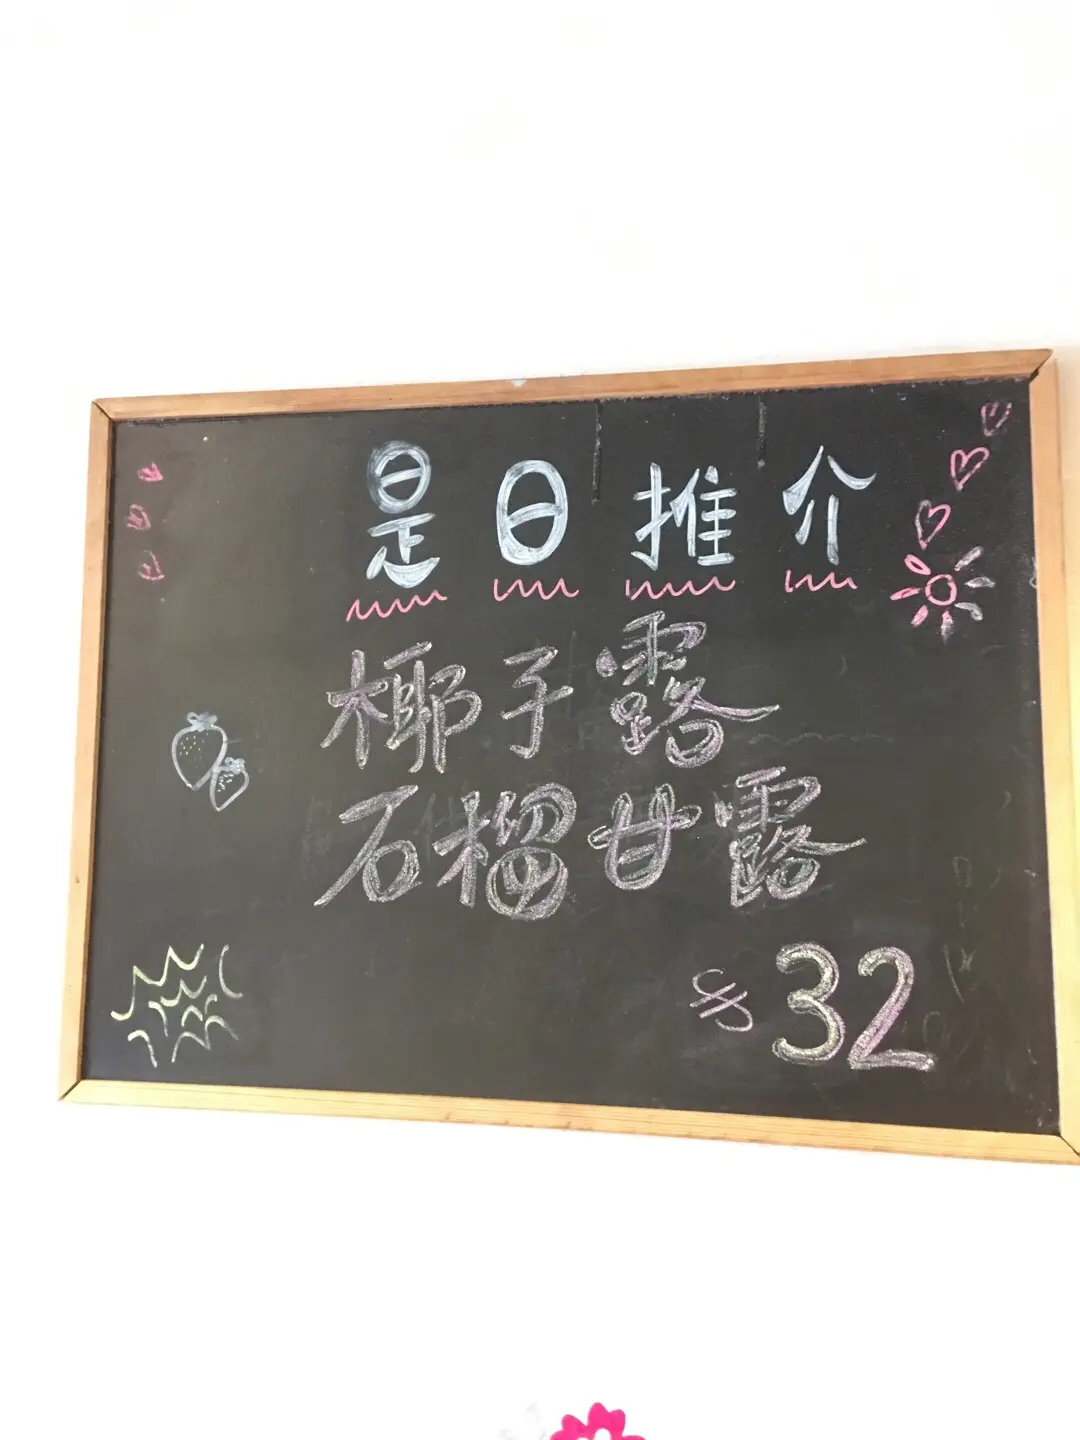 是日推介
椰子露
石榴甘露
$32